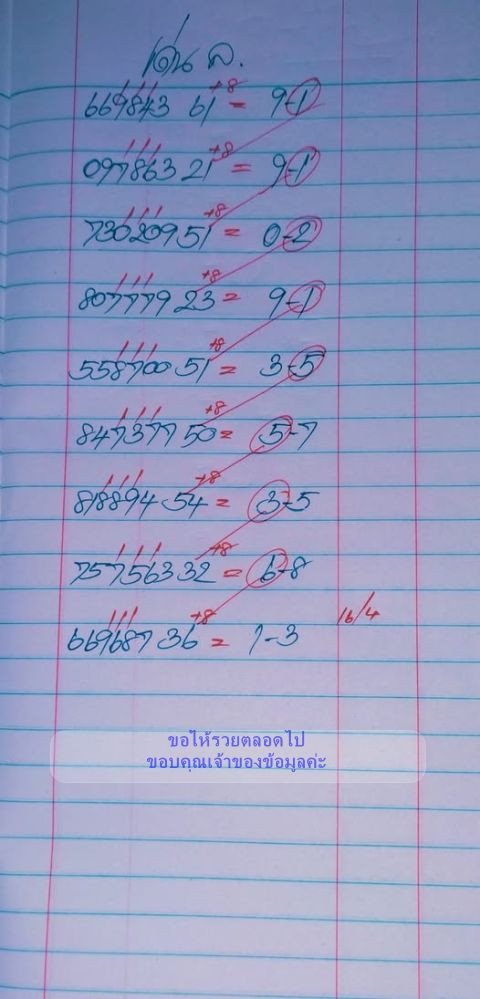 เด่น ล.
669843 61 +8 = 9-1
097863 21 +8 = 9-1
730209 51 +8 = 0-2
807779 23 +8 = 9-1
558700 51 +8 = 3-5
847377 50 +8 = 5-7
818894 54 +8 = 3-5
757563 32 +8 = 6-8
669687 36 +8 = 1-3
16/4
ขอให้รวยตลอดไป
ขอบคุณเจ้าของข้อมูลค่ะ